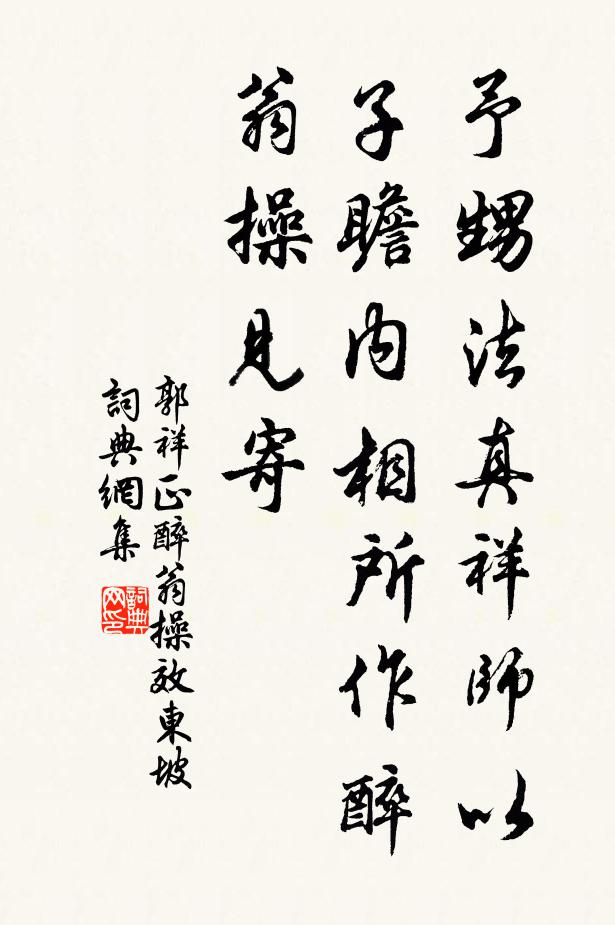 予甥法真祥師以
子瞻内相所作醉
翁操見寄
郭祥正醉翁操效東坡
詞典網集
詞典网印